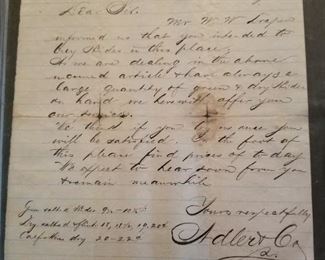 Dear Sir.
Mr. W. W. Draper
informed us that you intended to
buy Hides in this place,
As we are dealing in the above
named article & have always a
large quantity of green & dry Hides
on hand we herewith offer you
our services.
We think if you try us once you
will be satisfied. On the foot of
this please find prices of to day
We expect to hear soon from you
& remain meanwhile
Yours respectfully
Adler & Co
Green salted Hides
Dry salted
Calfskins dry 20-22